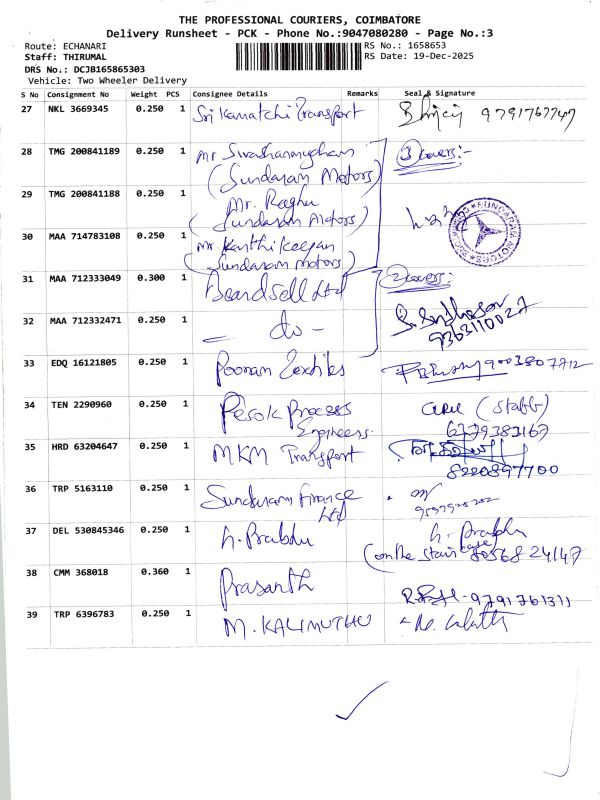 THE PROFESSIONAL COURIERS, COIMBATORE
Delivery Runsheet - PCK - Phone No.:9047080280 - Page No.:3
Route: ECHANARI
RS No.: 1658653
Staff: THIRUMAL
RS Date: 19-Dec-2025
DRS No.: DCJB165865303
Vehicle: Two Wheeler Delivery
S No Consignment No Weight PCS Consignee Details Remarks Seal & Signature
27 NKL 3669345 0.250 1 Sri Kamatchi Transport 9791767747
28 TMG 200841189 0.250 1 Mr (3 covers:-
(Sundaram Motors)
29 TMG 200841188 0.250 1 Mr. Raghu
(Sundaram Motors)
30 MAA 714783108 0.250 1 Mr. Karthikeyan
(Sundaram Motors)
SUNDARAM MOTORS
31 MAA 712333049 0.300 1 Beardsell Ltd (2 covers:-
32 MAA 712332471 0.250 1 - do -
9363110027
33 EDQ 16121805 0.250 1 Poonam Textiles 9003807712
34 TEN 2290960 0.250 1 Pesok Process (Staff)
Engineers. 6379383167
35 HRD 63204647 0.250 1 MKM Transport
8220897700
36 TRP 5163110 0.250 1 Sundaram Finance
Ltd
37 DEL 530845346 0.250 1 h. Prabhu h. Prabhu
(on the stair case) 8056824147
38 CMM 368018 0.360 1 Prasanth 9791761311
39 TRP 6396783 0.250 1 M. KALIMUTHU